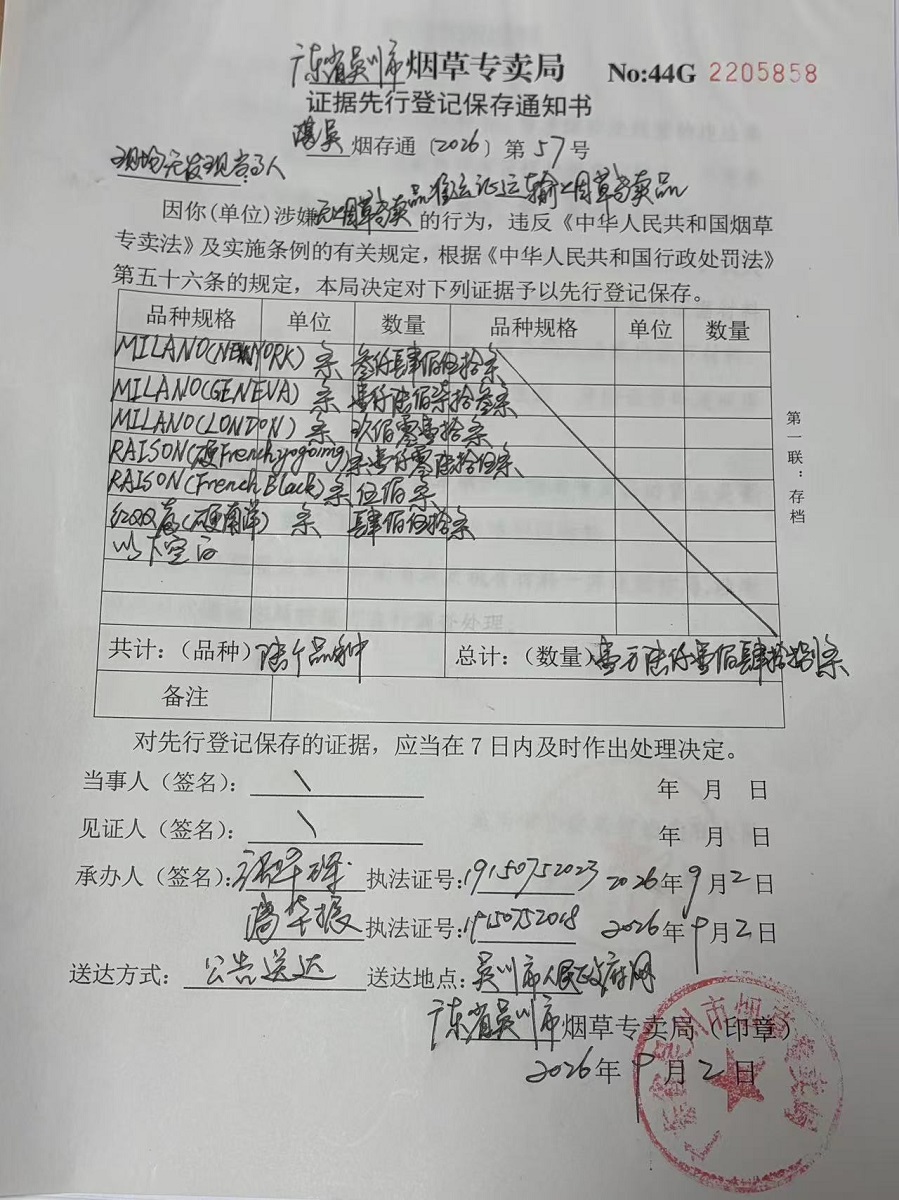 广东省吴川市烟草专卖局 No:44G 2205858
证据先行登记保存通知书
湛吴烟存通〔2026〕第57号
现场无发现当事人
无烟草专卖品准运证运输烟草专卖品
因你(单位)涉嫌的行为,违反《中华人民共和国烟草
专卖法》及实施条例的有关规定,根据《中华人民共和国行政处罚法》
第五十六条的规定,本局决定对下列证据予以先行登记保存。
品种规格 单位 数量 品种规格 单位 数量
MILANO(NEWYORK) 条 叁仟肆佰伍拾条
MILANO(GENEVA) 条 壹仟陆佰柒拾叁条
MILANO(LONDON) 条 玖佰零壹拾条
RAISON(硬French yogoing) 条 壹仟零陆拾伍条
RAISON(French Black) 条 伍佰条
红双喜(硬南洋) 条 肆佰伍拾条
以下空白
共计:(品种)陆个品种 总计:(数量)壹万陆仟壹佰肆拾捌条
备注
第一联:存档
对先行登记保存的证据,应当在7日内及时作出处理决定。
当事人(签名): \ 年 月 日
见证人(签名): \ 年 月 日
承办人(签名): 执法证号:19150752023 2026年9月2日
执法证号:19150752018 2026年9月2日
送达方式: 公告送达 送达地点:吴川市人民政府网
广东省吴川市烟草专卖局(印章)
2026年9月2日